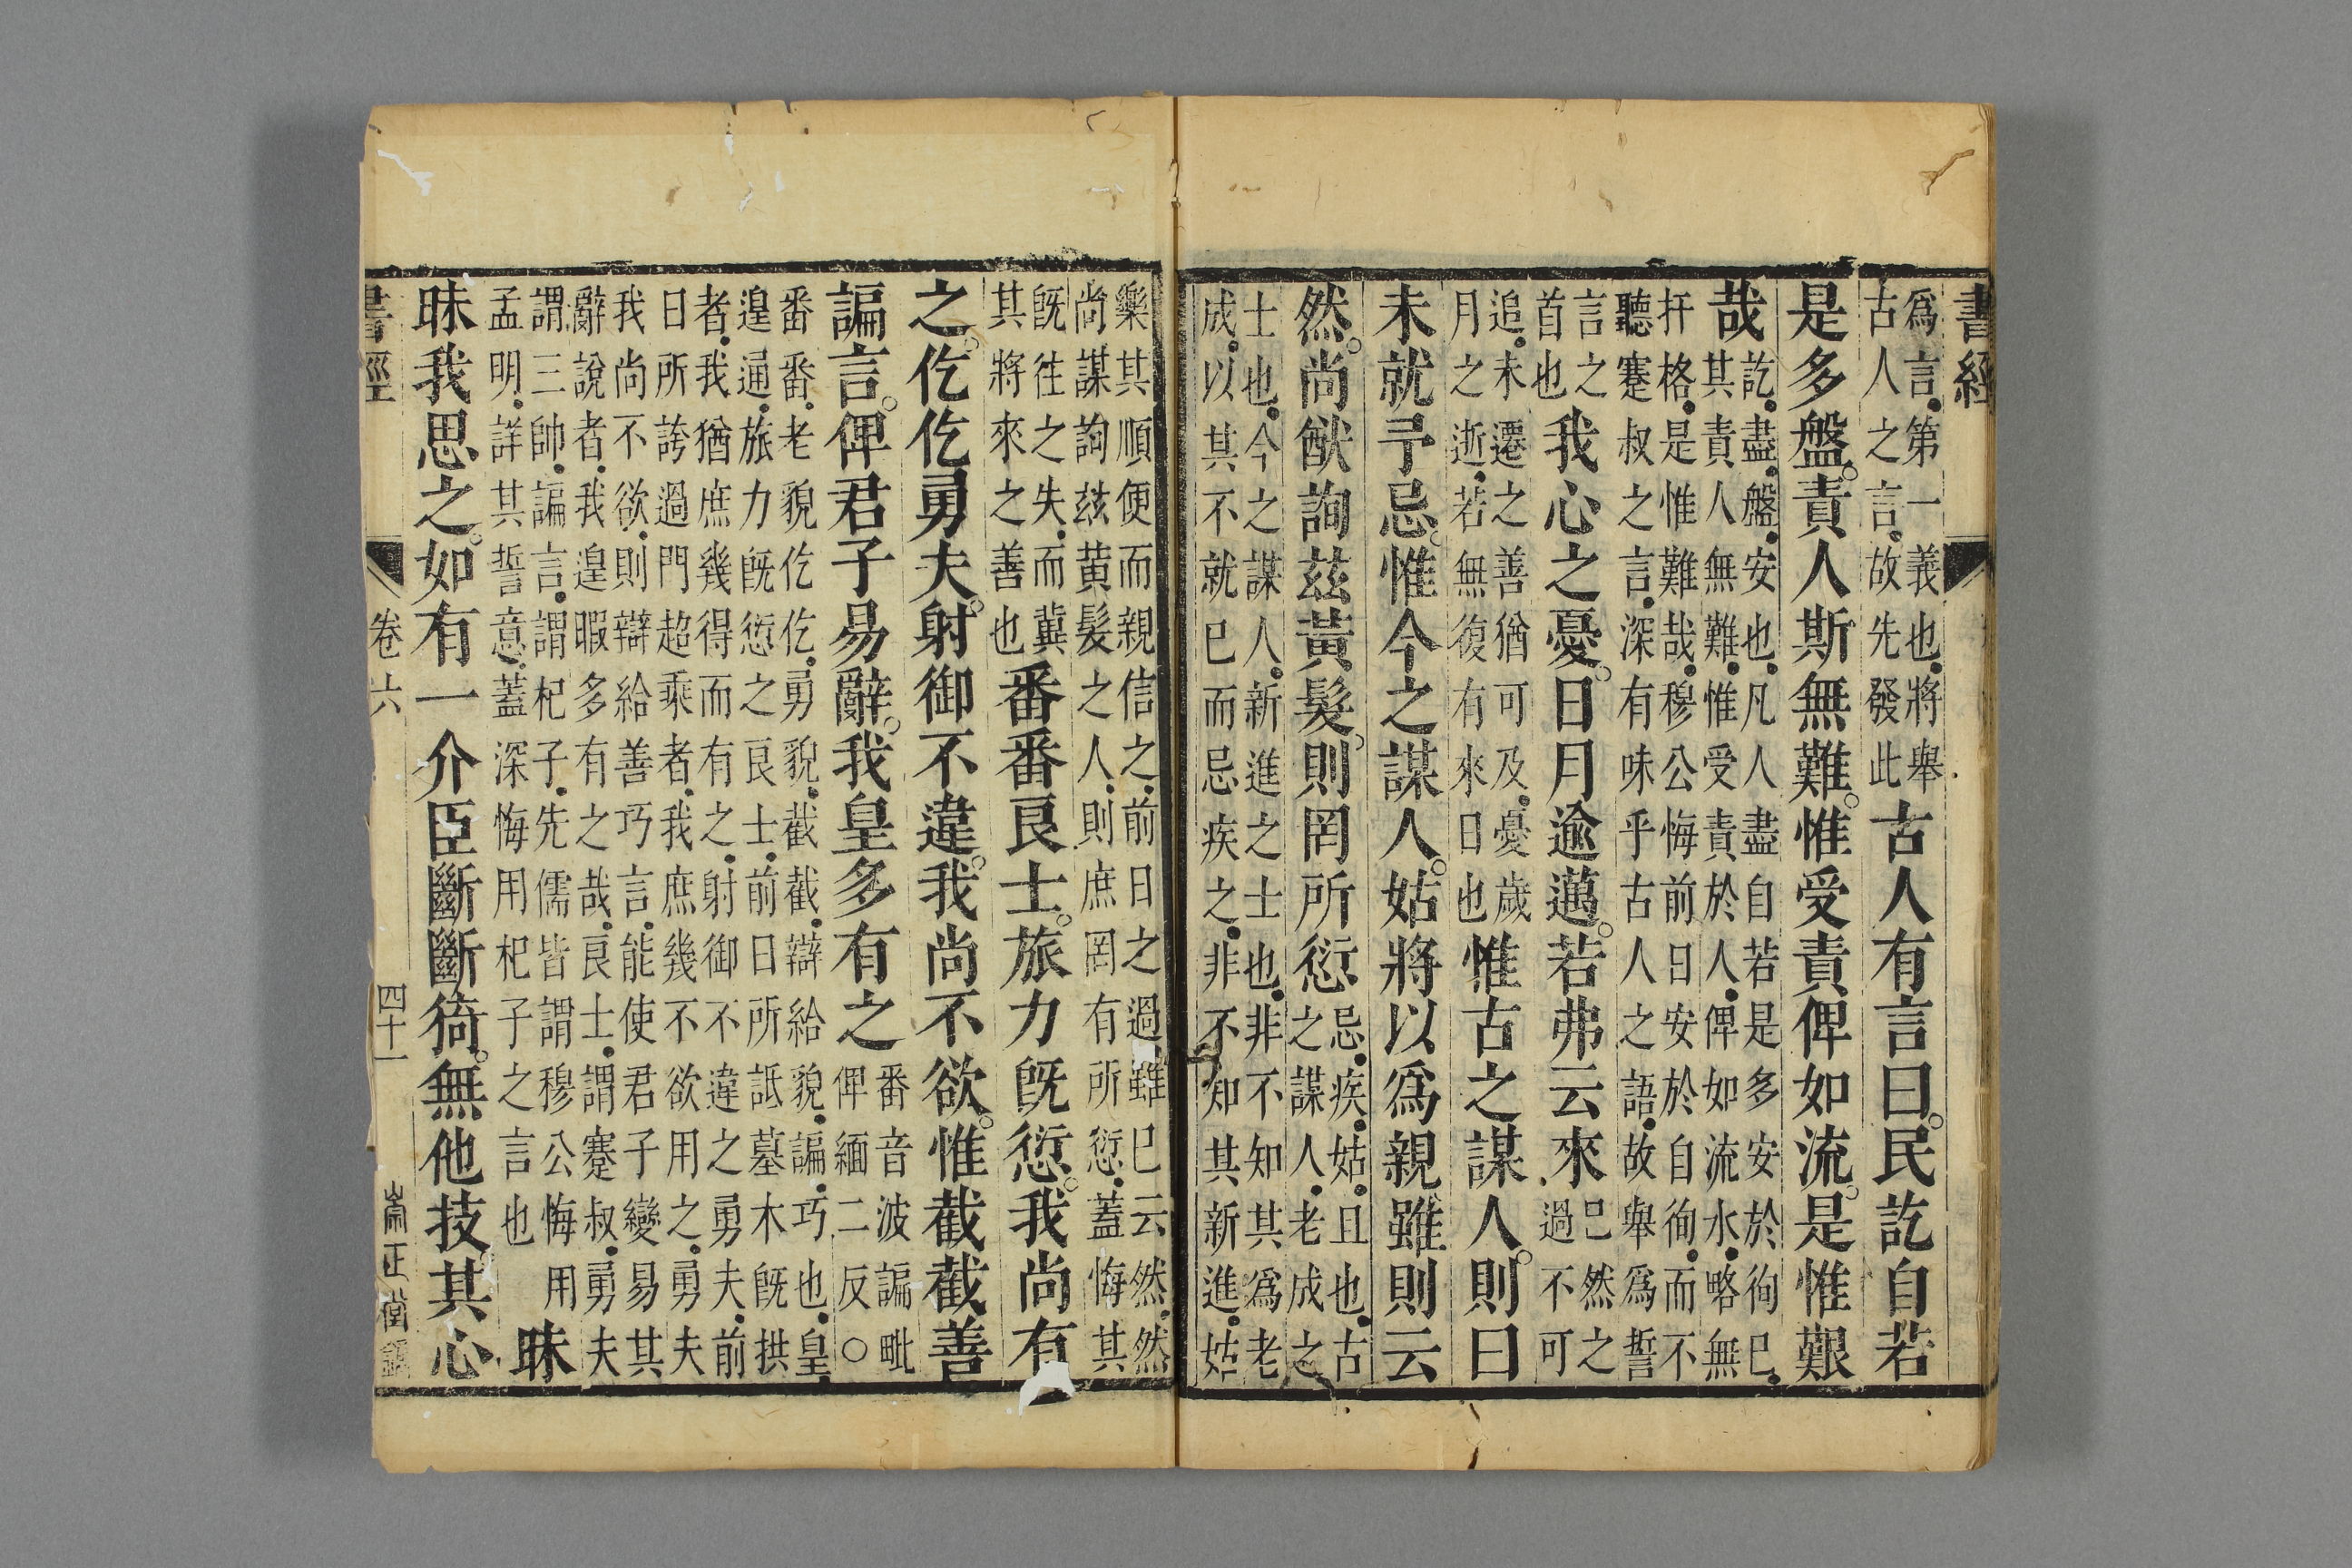 書經
爲言第一義也將舉
古人之言故先發此
古人有言曰民訖自若
是多盤責人斯無難惟受責俾如流是惟艱
哉
訖盡盤安也凡人盡自若是多安於徇已
其責人無難惟受責於人俾如流水略無
扞格是惟難哉穆公悔前日安於自徇而不
聽蹇叔之言深有味乎古人之語故舉爲誓
言之
首也
我心之憂日月逾邁若弗云來
已然之
過不可
追未遷之善猶可及憂歲
月之逝若無復有來日也
惟古之謀人則曰
未就予忌惟今之謀人姑將以爲親雖則云
然尚猷詢茲黃髮則罔所愆
忌疾姑且也古
之謀人老成之
士也今之謀人新進之士也非不知其爲老
成以其不就已而忌疾之非不知其新進姑
樂其順便而親信之前日之過雖已云然然
尚謀詢茲黃髮之人則庶罔有所愆蓋悔其
既往之失而冀
其將來之善也
番番良士旅力既愆我尚有
之仡仡勇夫射御不違我尚不欲惟截截善
諞言俾君子易辭我皇多有之
番音波諞毗
俾緬二反○
番番老貌仡仡勇貌截截辯給貌諞巧也皇
遑通旅力既愆之良士前日所詆墓木既拱
者我猶庶幾得而有之射御不違之勇夫前
日所誇過門超乘者我庶幾不欲用之勇夫
我尚不欲則辯給善巧言能使君子變易其
辭說者我遑暇多有之哉良士謂蹇叔勇夫
謂三帥諞言謂杞子先儒皆謂穆公悔用
孟明詳其誓意蓋深悔用杞子之言也
昧
昧我思之如有一介臣斷斷猗無他技其心
書經
卷六
四十一
崇正堂